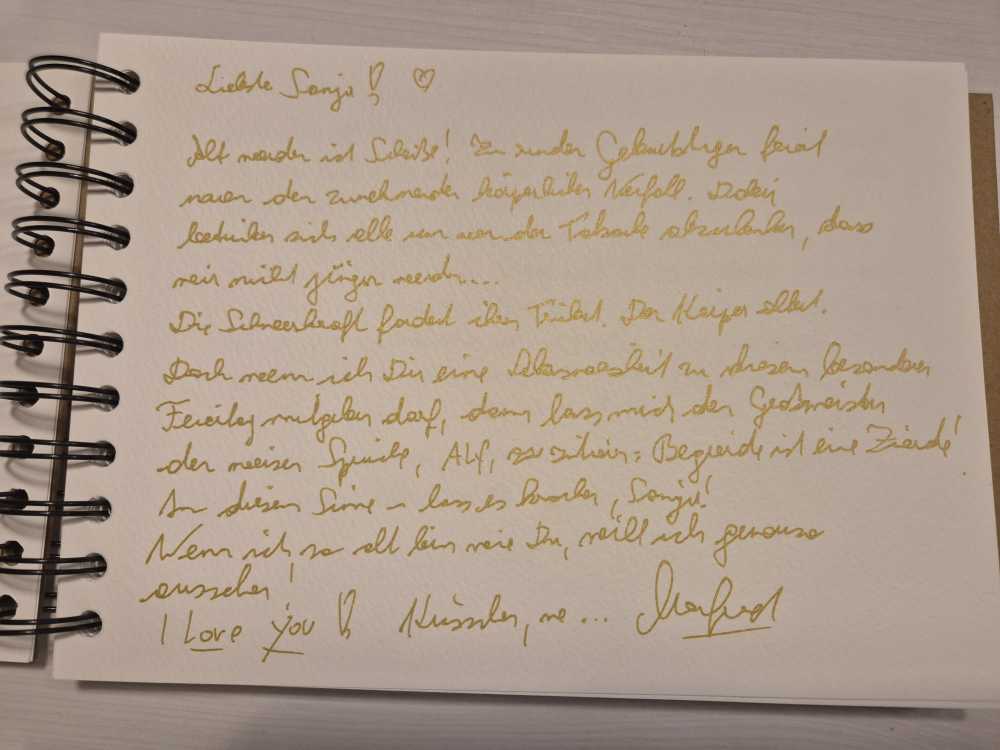 Liebste Sonja! ♡
Alt werden ist Scheiße! Zu runden Geburtstagen feiert
man den zunehmenden körperlichen Verfall. Dabei
betrinken sich alle um von der Tatsache abzulenken, dass
wir nicht jünger werden....
Die Schwerkraft fordert ihren Tribut. Der Körper altert.
Doch wenn ich Dir eine Lebensweisheit zu diesem besonderen
Feiertag mitgeben darf, dann lass mich den Großmeister
der weisen Sprüche, Alf, zitieren: Begierde ist eine Zierde!
In diesem Sinne - lass es krachen, Sonja!
Wenn ich so alt bin wie Du, will ich genauso
aussehen!
I Love You! Küsschen, ... Manfred